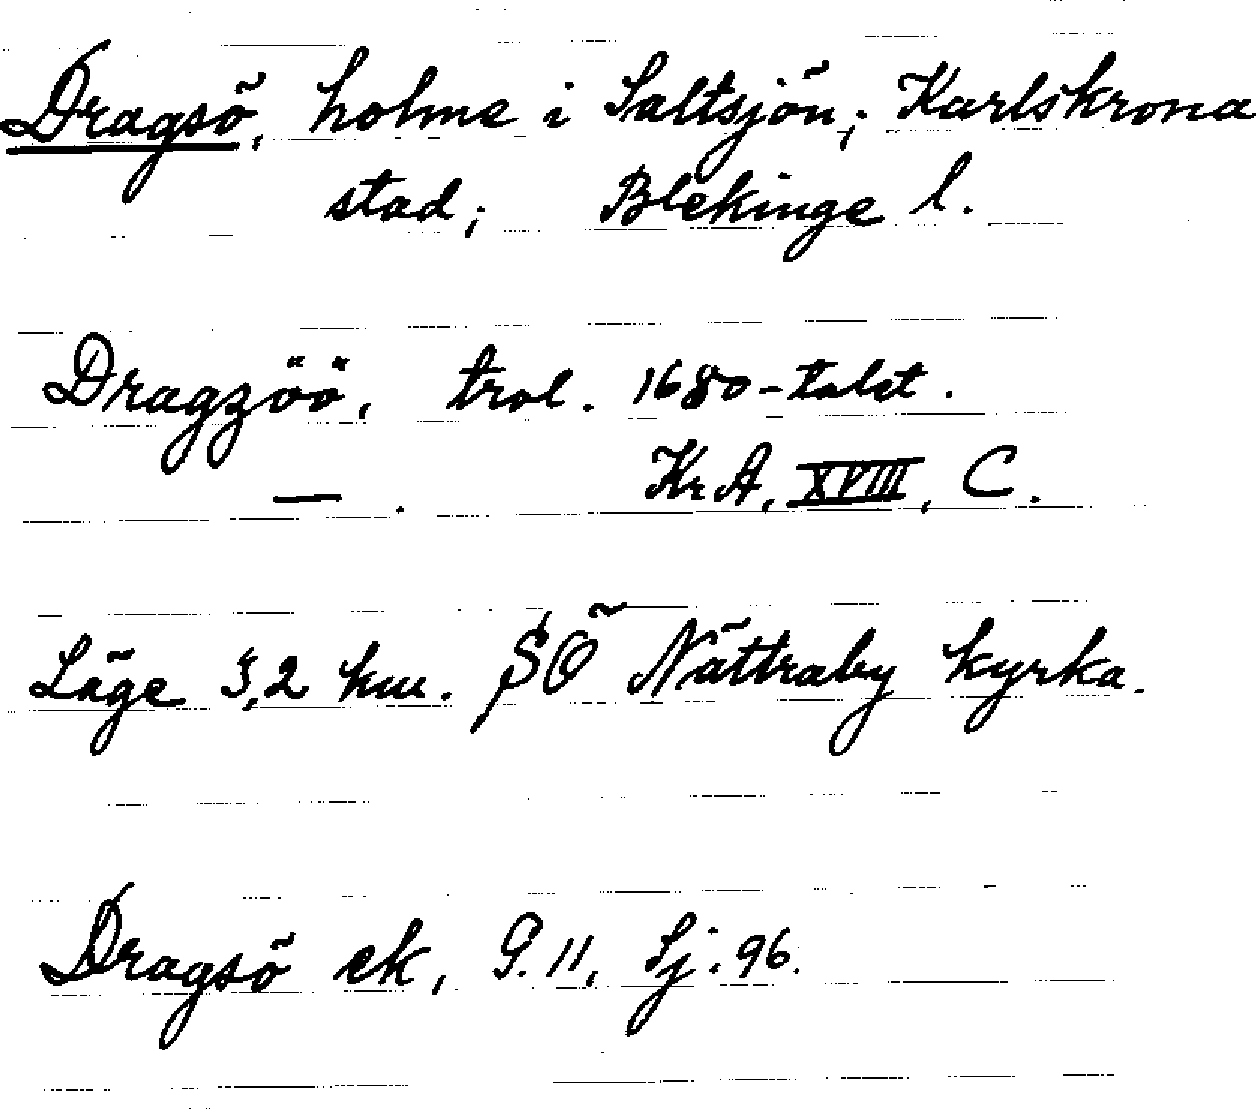 Dragsö, holme i Saltsjön; Karlskrona
stad; Blekinge l.
Dragzöö, trol. 1680-talet.
— . KrA, XVIII, C.
Läge 3,2 km. SÖ Nättraby kyrka.
Dragsö ek, G. 11, Sj. 96.